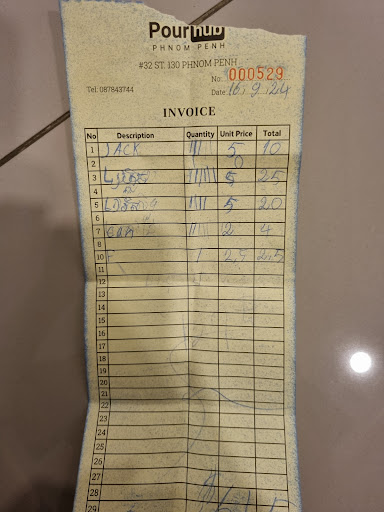 Pourhub
PHNOM PENH
#32 ST. 130 PHNOM PENH
No: 000529
Tel: 087843744
Date: 16.9.24
INVOICE
No Description Quantity Unit Price Total
1 JACK 5 10
2
3 5 25
4
5 5 20
6
7 2 4
8
9
10 2.5
11
12
13
14
15
16
17
18
19
20
21
22
23
24
25
26
27
28
29